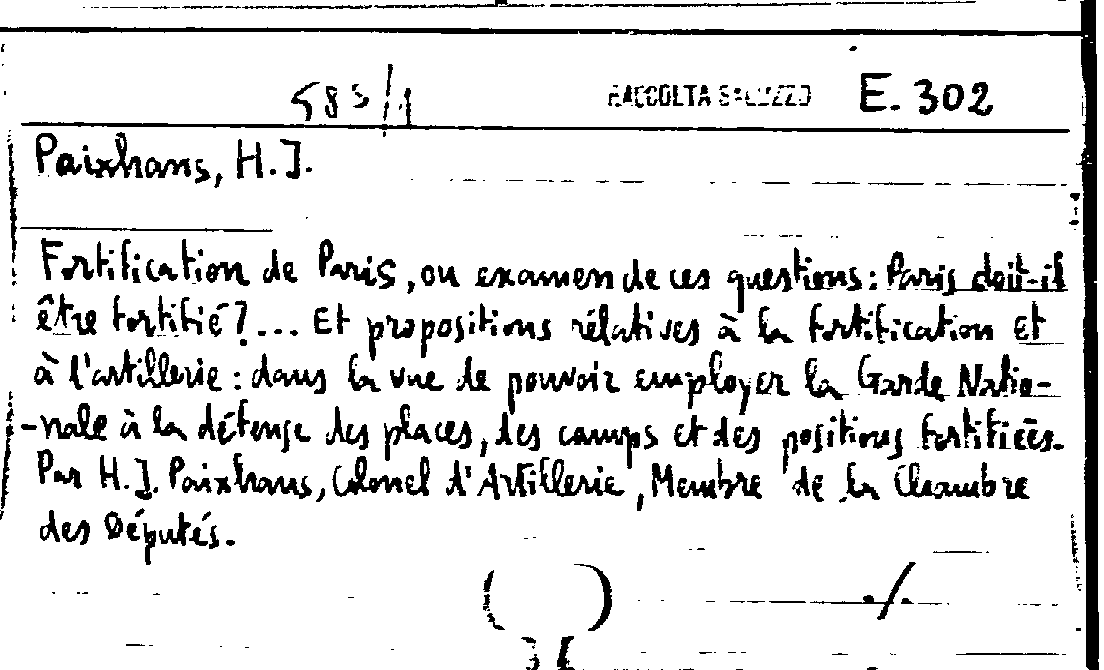 585/1 RACCOLTA SALUZZO E. 302
Paixhans, H.J.
Fortification de Paris, ou examen de ces questions: Paris doit-il
être fortifié?... Et propositions rélatives à la fortification et
à l'artillerie: dans la vue de pouvoir employer la Garde Natio-
-nale à la défense des places, des camps et des positions fortifiées.
Par H.J. Paixhans, Colonel d'Artillerie, Membre de la Chambre
des Députés.
./.